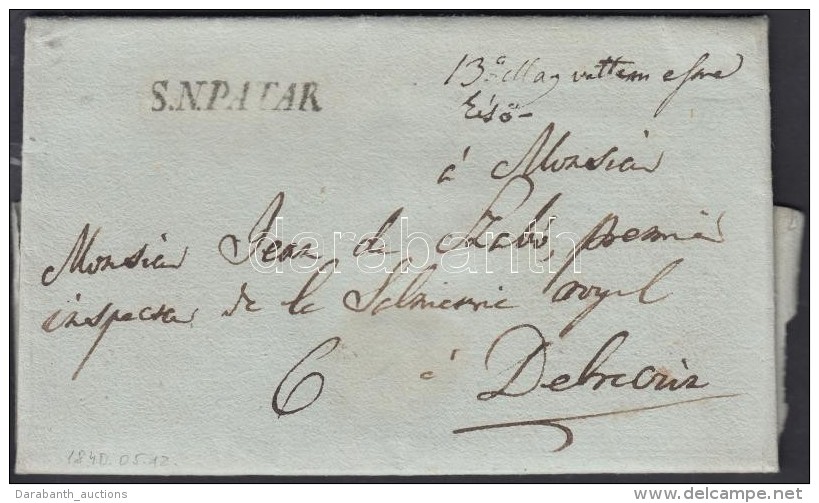 S.N.PATAR
13ª May vettem
Elsö
à Monsieur
Monsieur Jean de Szabó, premier
inspecteur de la royal
6 à Debreczin
1840. 05. 12.
darabanth
Darabanth_auctions
www.delcampe.net